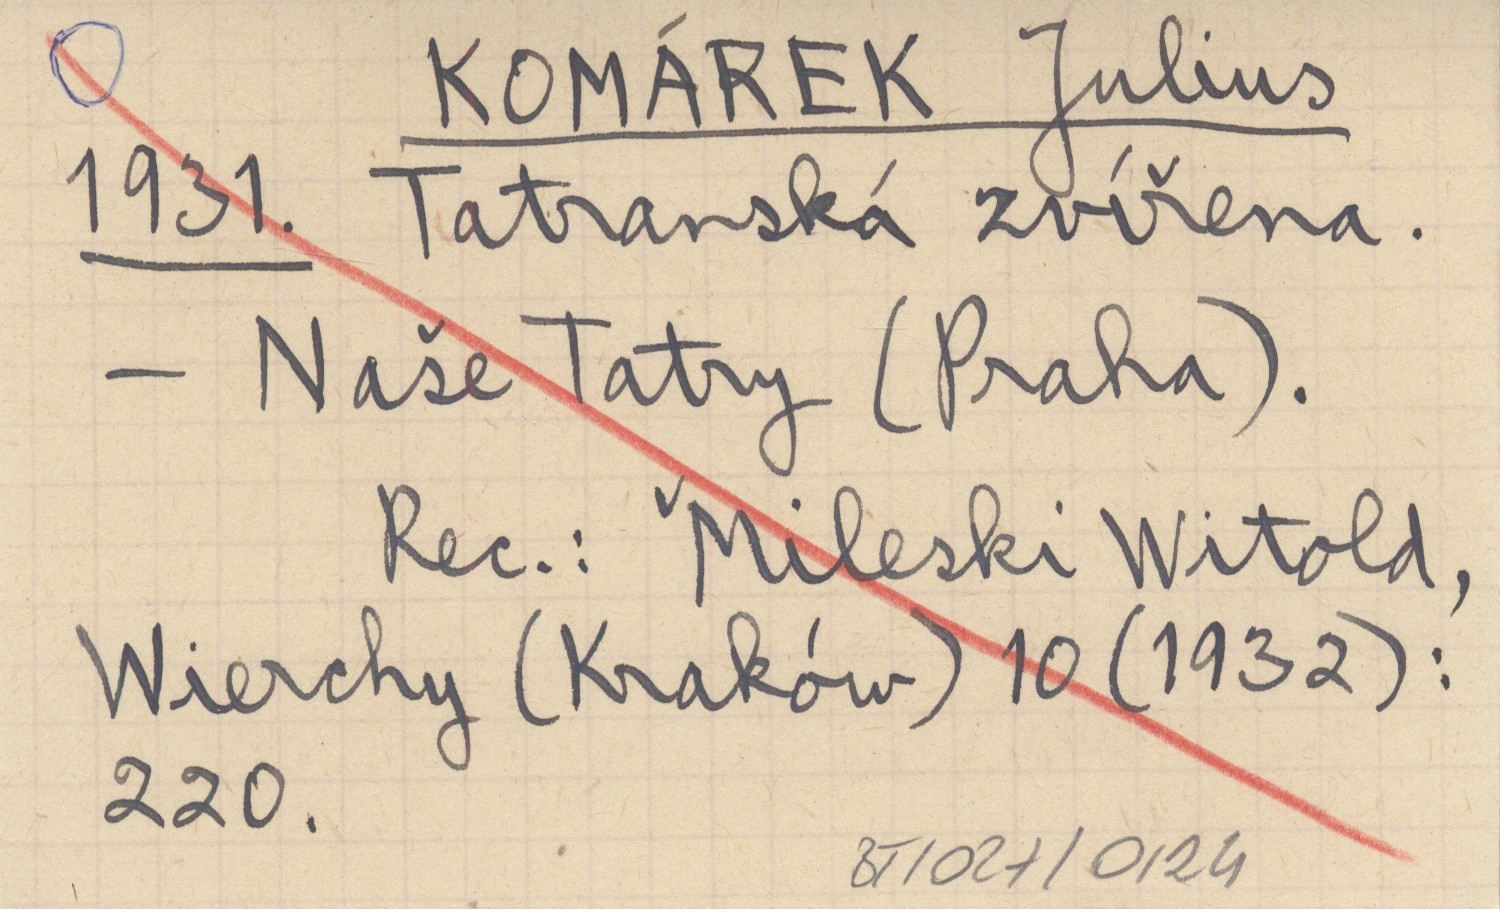 KOMÁREK Julius
1931. Tatranská zvířena.
— Naše Tatry (Praha).
Rec.: Mileski Witold,
Wierchy (Kraków) 10 (1932):
220.
BT/027/0124